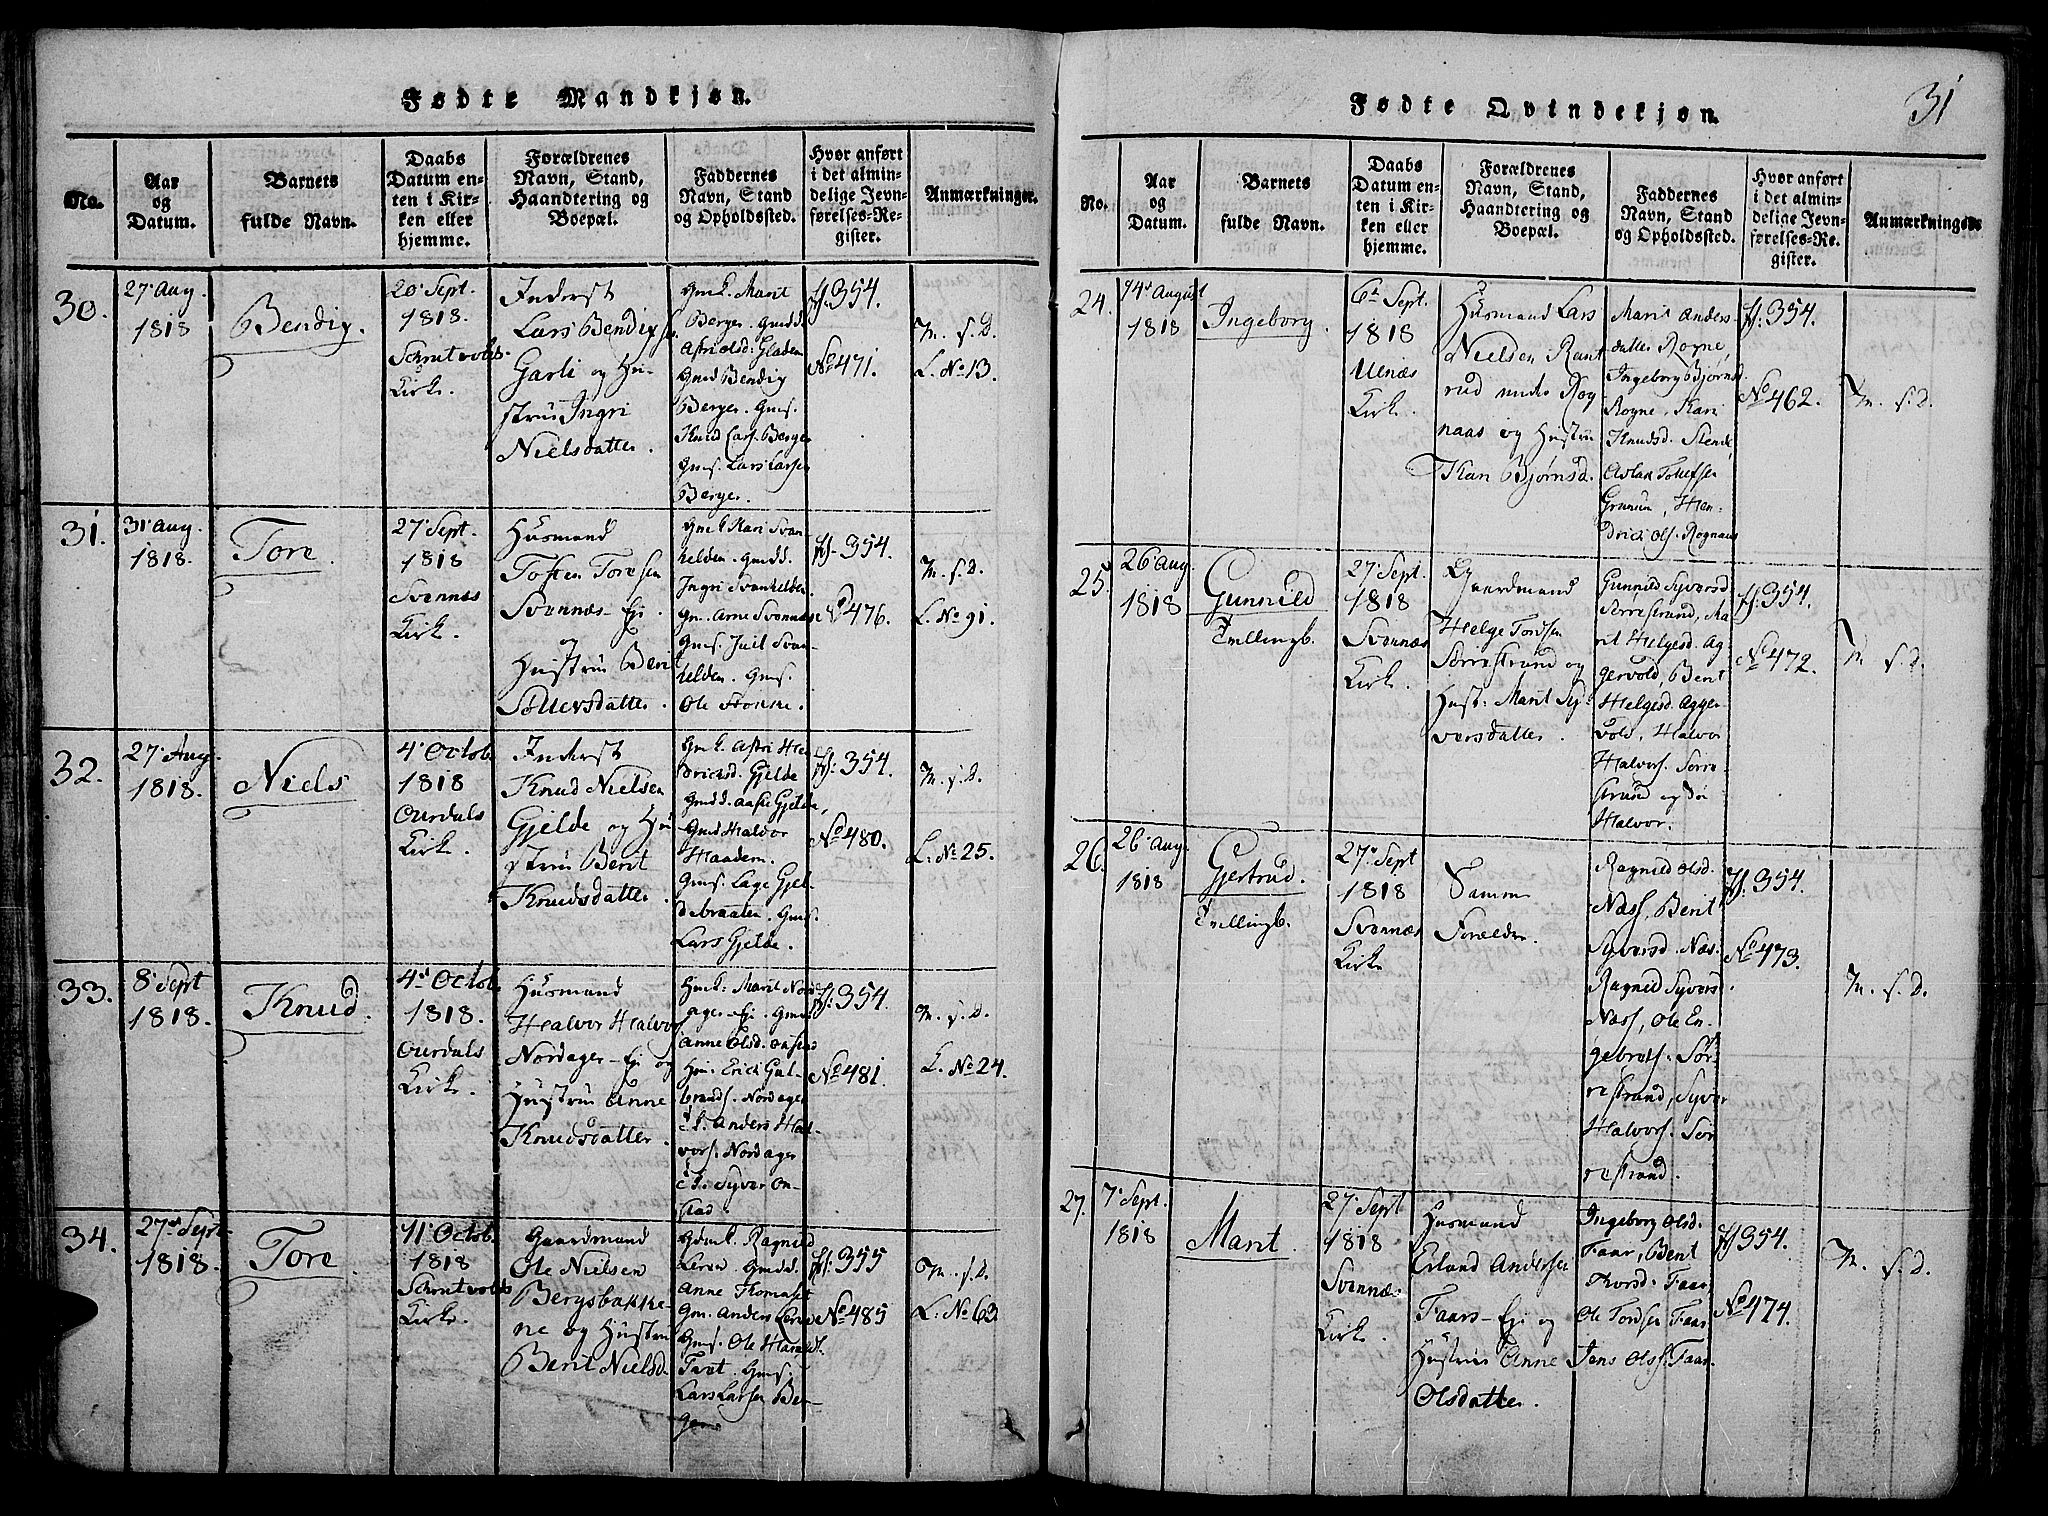 Fødte Mandkjøn.
No.
Aar
og
Datum.
Barnets
fulde Navn.
Daabs
Datum en-
ten i Kir-
ken eller
hjemme.
Forældrenes
Navn, Stand,
Haandtering og
Boepæl.
Faddernes
Navn, Stand
og Opholdssted.
Hvor anført
i det almin-
delige Jevn-
førelses-Re-
gister.
Anmærkninger.
30.
27 Aug.
1818
Bendig.
20 Sept.
1818.
Schrutvolds
Kirke.
Inderst
Lars Bendixs.
Garli og Hu-
strue Ingri
Nielsdatter.
Gmk. Marit
Berger. Gmdd.
Astri Olsd: Gladem
Gmd Bendig
Berger. Gms.
Knud Lars. Berger
Gms. Lars Larsen
Berger.
354.
No 471.
M. s. D.
L. No 13.
31.
31 Aug.
1818.
Tore.
27 Sept.
1818
Svennæs
Kirke.
Husmand
Tosten Toresen
Svennæs-Eje
og
Hustrue Berit
Sølversdatter.
Gmk Kari Svan-
helden. Gmdd.
Ingri Svanhelden
Gm. Arne Svennæs
Gms. Juel Svan-
helden. Gms.
Ole
354.
No 476.
M. s. D.
L. No 91.
32.
27 Aug.
1818.
Niels
4 Octob.
1818
Ourdals
Kirke.
Inderst
Knud Nielsen
Gjelde og Hu
strue Berit
Knudsdatter.
Gmk. Astri Hen
dricksd. Gjelde
Gmdd. Aase Gjelde,
Gmd Halvor
Haadem.
Gms. Lage Gjel-
debraaten. Gms.
Lars Gjelde.
354.
No 480.
M. s. D.
L. No 25.
33.
8 Sept
1818.
Knud.
4 Octob.
1818.
Ourdals
Kirke.
Husmand
Halvor Halvors
Nordager-Eje og
Hustrue Anne
Knudsdatter.
Hmk. Marit Nord
ager-Eje. Gmd
Anne Olsd.
Hm. Erick Gul-
brands. Nordager
Anders Hal-
vors. Nordager
Syver On-
stad.
354.
No 481.
M. s. D.
L. No 24.
34.
27 Sept.
1818.
Tore.
11 Octob.
1818
Schrutvolds
Kirke.
Gaardmand
Ole Nielsen
Bergsbakke-
ne og Hustrue
Berit Nielsd.
Gdmk. Ragnild
Leren. Gmdd.
Anne Thomasd.
Gm. Anders Leren
Gms. Ole Haralds.
Tvet. Gms.
Lars Larsen Ber-
ger.
355
No 485
M. s. D.
L. No 63.
Fødte Qvindekjøn.
31
No.
Aar
og
Datum.
Barnets
fulde Navn.
Daabs
Datum en-
ten i Kir-
ken eller
hjemme.
Forældrenes
Navn, Stand,
Haandtering og
Boepæl.
Faddernes
Navn, Stand
og Opholdssted.
Hvor anført
i det almin-
delige Jevn-
førelses-Re-
gister.
Anmærkninger.
24.
14 August
1818
Ingeborg.
6 Sept.
1818
Ulnæs
Kirke.
Husmand Lars
Nielsen Rant
rud under Rog
naas og Hustrue
Kari Bjørnsd.
Marit Anders-
datter Rogne,
Ingeborg Bjørnsd.
Rogne. Kari
Knudsd. Stende
Aslak Tollefsen
Hen-
drick Ols. Rognaas
354.
No 462.
M. s. D.
25.
26 Aug.
1818
Gunnild
Tvillingb.
27 Sept.
1818
Svennæs
Kirke.
Gaardmand
Helge Tordsen
Sørrestrand og
Hust: Marit Sy-
versdatter.
Gunnild Syversd
Sørrestrand, Ma-
rit Helgesd. Ag-
gervold, Berit
Helgesd. Agger-
vold, Halvor
Halvors. Sørre-
strand og Søn
Halvor.
354.
No 472.
M. s. D.
26.
26 Aug.
1818
Gjertrud.
Tvillingb.
27 Sept
1818
Svennæs
Kirke
Samme
Forældre.
Ragnild Olsd.
Næss, Berit
Syversd. Næs.
Ragnild Syvers.
Næss, Ole En-
gebrets. Sør-
restrand, Syver
Halvors. Sør
restrand.
354.
No 473.
M. s. D.
27.
7 Sept.
1818
Marit.
27 Sept
1818
Svennæs
Kirke.
Husmand
Erland Andersen
Faars-Eje og
Hustrue Anne
Olsdatter.
Ingeborg Olsd.
Faar, Berit
Thorsd: Faar
Ole Tordsen Faar
Jens Ols. Faar.
354.
No 474.
M. s. D.